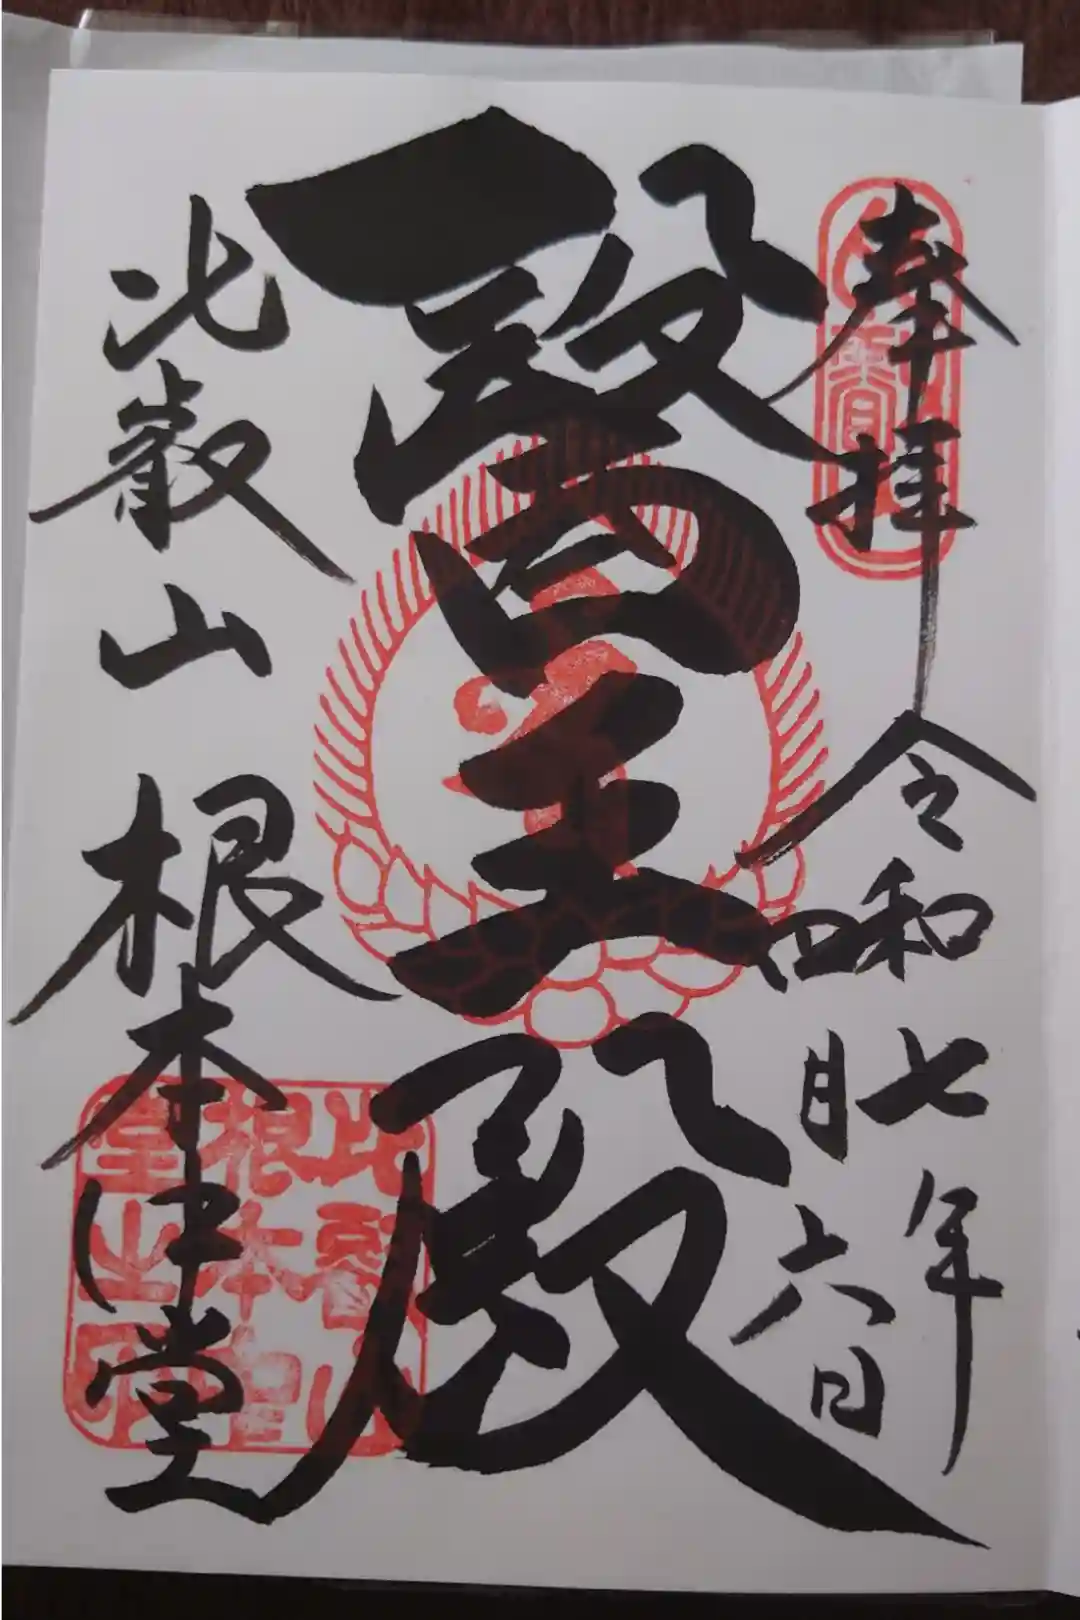 奉拝 令和七年
四月六日
醫王殿
比叡山 根本中堂
比叡山
根本中
堂之印